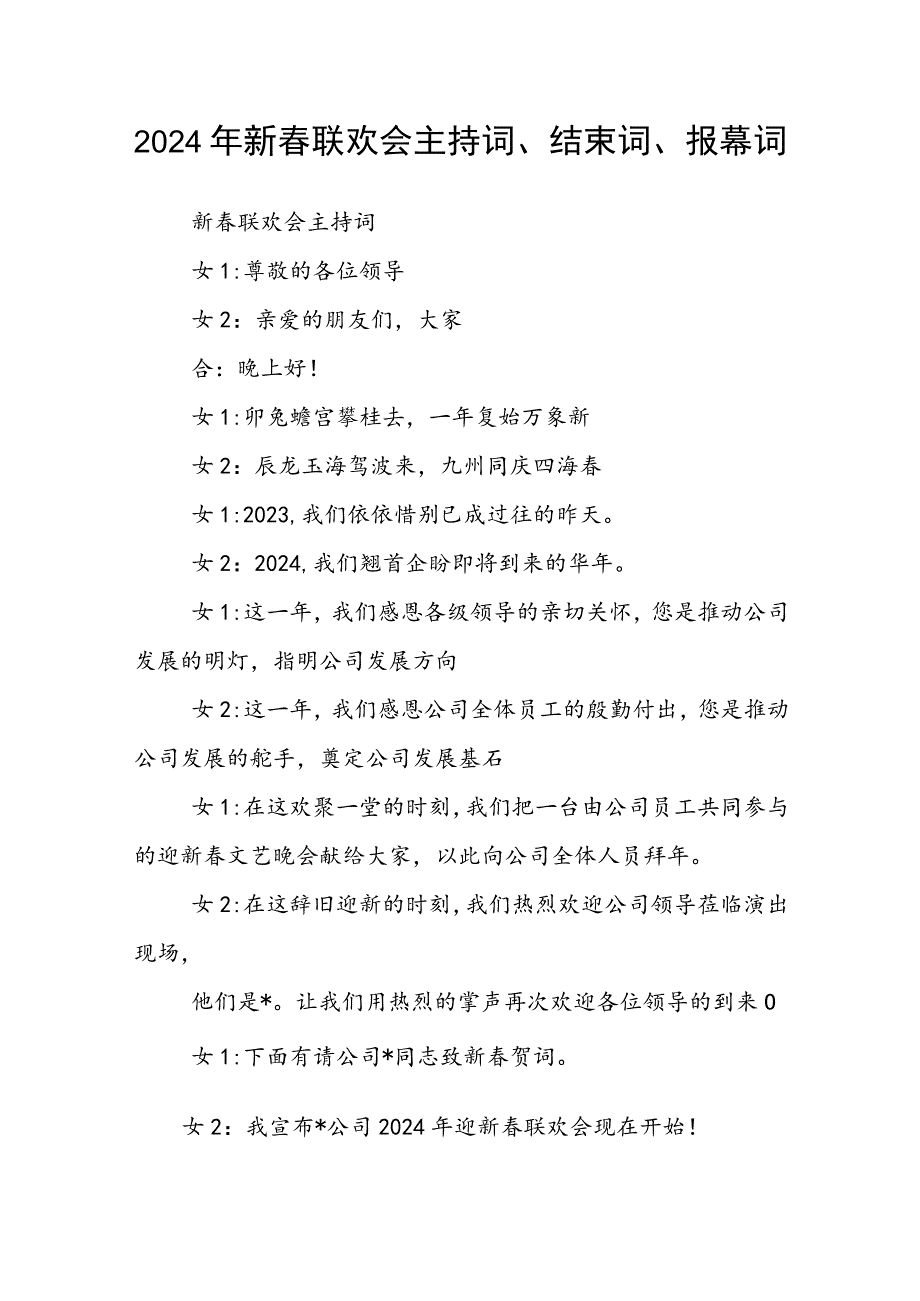 2024年新春联欢会主持词、结束词、报幕词
新春联欢会主持词
女1:尊敬的各位领导
女2：亲爱的朋友们，大家
合：晚上好！
女1:卯兔蟾宫攀桂去，一年复始万象新
女2：辰龙玉海驾波来，九州同庆四海春
女1:2023,我们依依惜别已成过往的昨天。
女2：2024,我们翘首企盼即将到来的华年。
女1:这一年，我们感恩各级领导的亲切关怀，您是推动公司
发展的明灯，指明公司发展方向
女2:这一年，我们感恩公司全体员工的殷勤付出，您是推动
公司发展的舵手，奠定公司发展基石
女1:在这欢聚一堂的时刻,我们把一台由公司员工共同参与
的迎新春文艺晚会献给大家，以此向公司全体人员拜年。
女2:在这辞旧迎新的时刻,我们热烈欢迎公司领导莅临演出
现场，
他们是*。让我们用热烈的掌声再次欢迎各位领导的到来0
女1:下面有请公司*同志致新春贺词。
女2：我宣布*公司2024年迎新春联欢会现在开始！